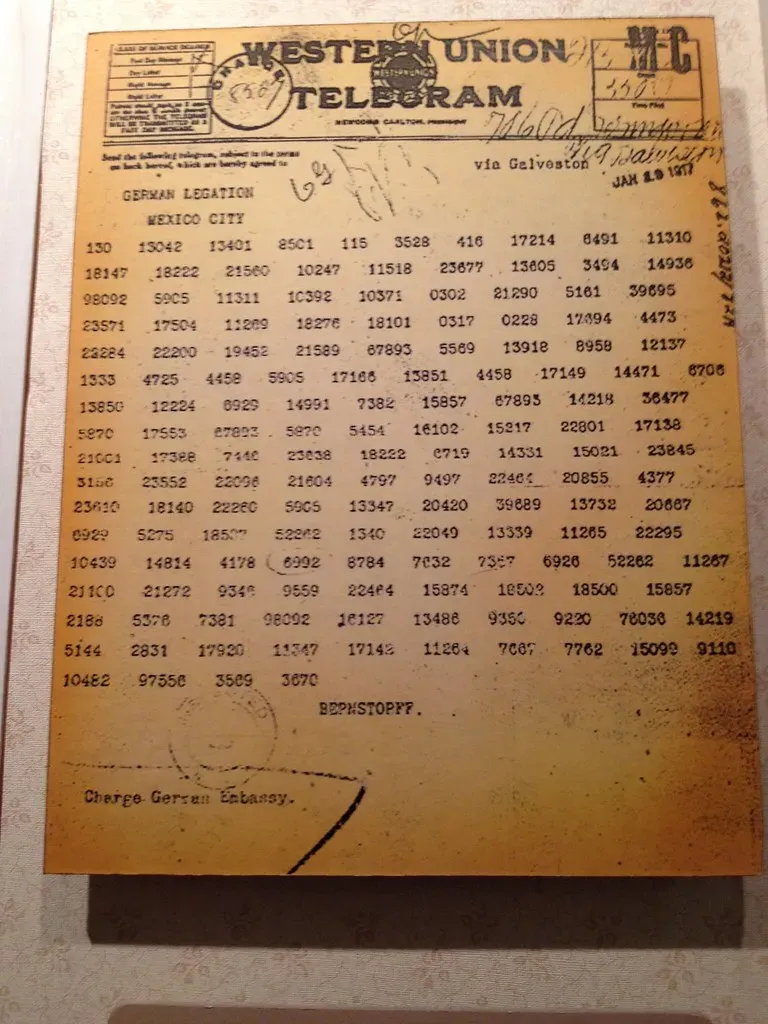 CLASS OF SERVICE DESIRED
Fast Day Message
Day Letter
Night Message
Night Letter
Patrons should mark an X
OTHERWISE THE TELEGRAM
WILL BE TRANSMITTED AS A
FAST DAY MESSAGE.
CHARGE
8587
WESTERN UNION
WESTERN UNION
TELEGRAM
NEWCOMB CARLTON, PRESIDENT
Time Filed
Send the following telegram, subject to the terms
on back hereof, which are hereby agreed to
via Galveston
JAN 19 1917
GERMAN LEGATION
MEXICO CITY
130 13042 13401 8501 115 3528 416 17214 6491 11310
18147 18222 21560 10247 11518 23677 13605 3494 14936
98092 5905 11311 10392 10371 0302 21290 5161 39695
23571 17504 11269 18276 18101 0317 0228 17694 4473
22284 22200 19452 21589 67893 5569 13918 8958 12137
1333 4725 4458 5905 17166 13851 4458 17149 14471 6706
13850 12224 6929 14991 7382 15857 67893 14218 36477
5870 17553 67893 5870 5454 16102 15217 22801 17138
21001 17388 7446 23638 18222 6719 14331 15021 23845
3156 23552 22096 21604 4797 9497 22464 20855 4377
23610 18140 22260 5905 13347 20420 39689 13732 20667
6929 5275 18507 52262 1340 22049 13339 11265 22295
10439 14814 4178 6992 8784 7632 7357 6926 52262 11267
21100 21272 9346 9559 22464 15874 18502 18500 15857
2188 5376 7381 98092 16127 13486 9350 9220 76036 14219
5144 2831 17920 11347 17142 11264 7667 7762 15099 9110
10482 97556 3569 3670
BEPNSTOPFF.
Charge German Embassy.